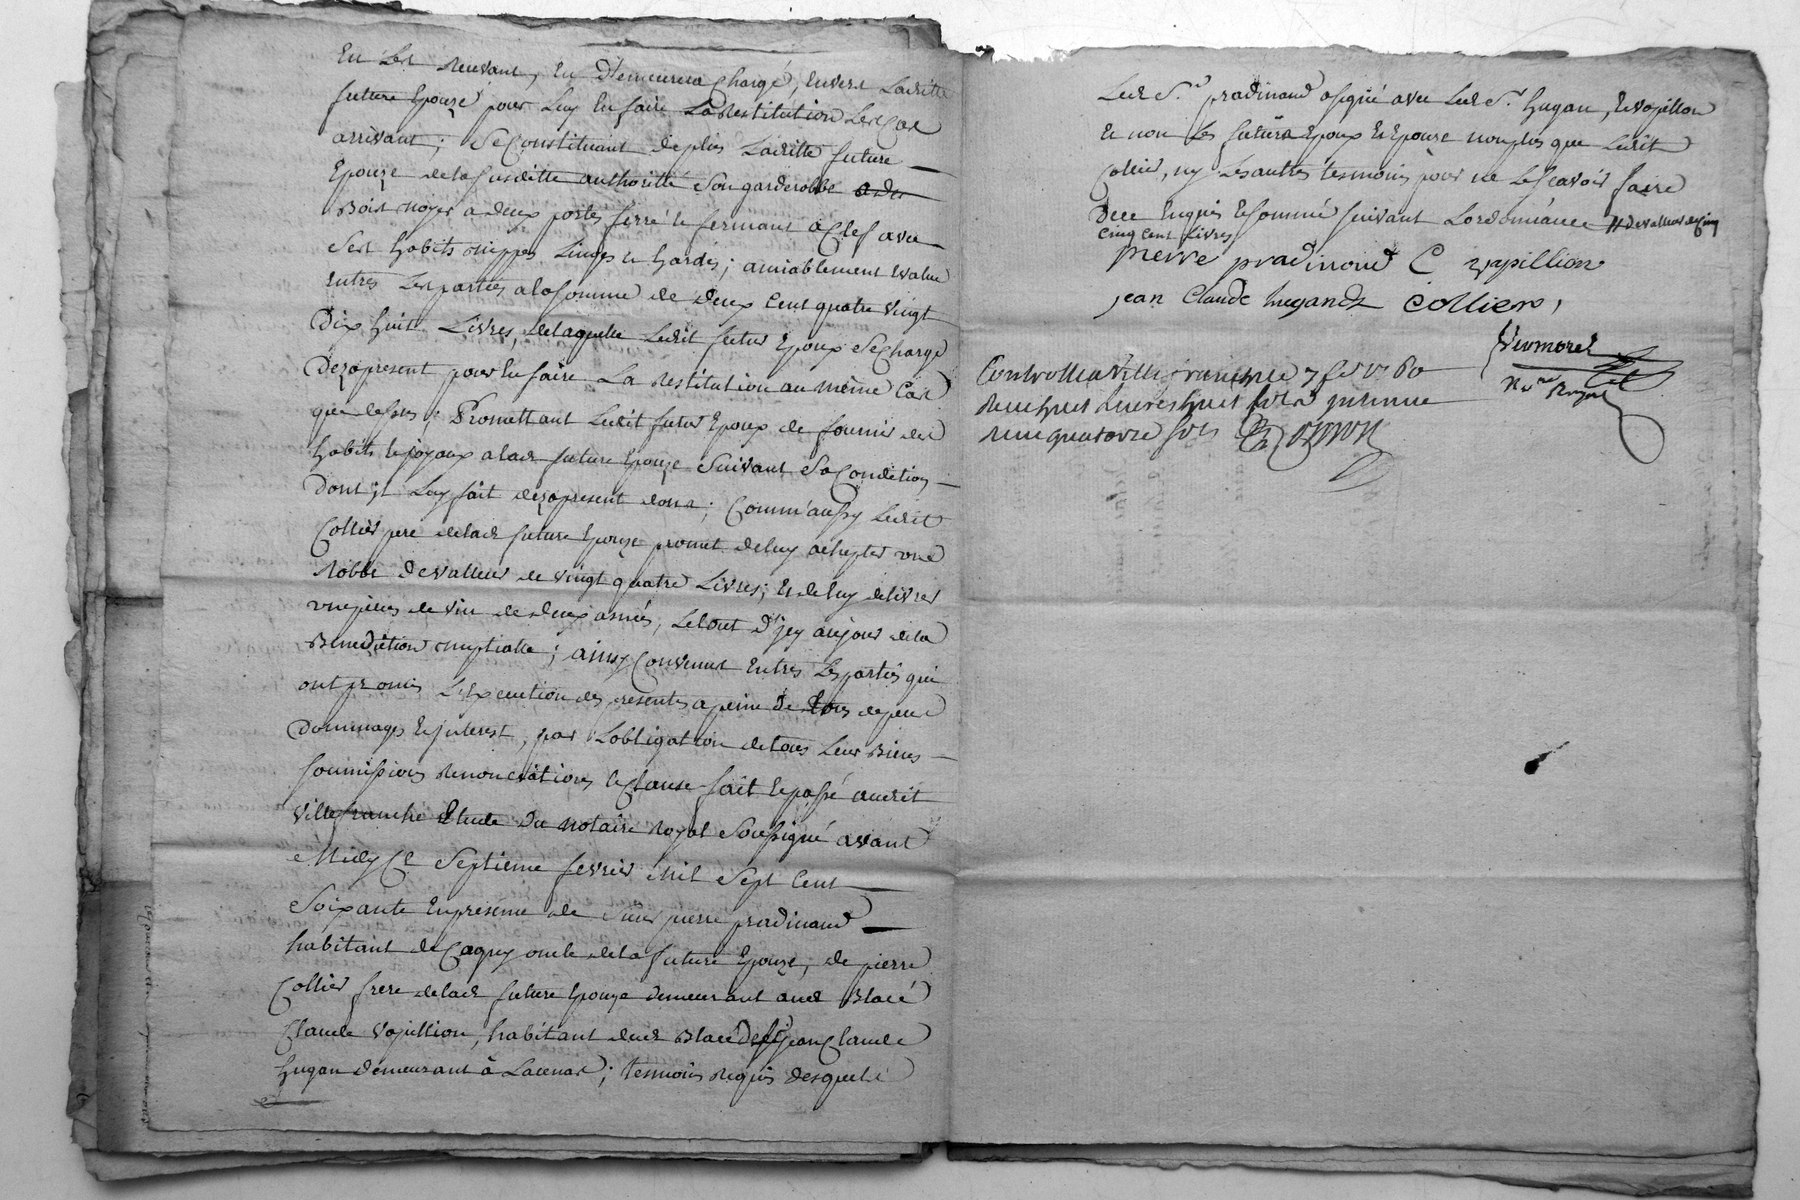 En les recevant, En demeurera Chargé, Envers Laditte
future Epouze pour Luy En faire La Restitution Le Cas
arrivant; Se Constituant deplus Laditte future
Epouze delasusditte authorité Son garderobbe
Bois noyer a deux portes ferré et fermant a Clef avec
Ses habits nippes Linges et hardes; amiablement Evalué
Entres Les parties alasomme de deux Cent quatre vingt
Dix huit Livres, delaquelle Ledit futur Epoux Se Charge
Dezapresent pour En faire La Restitution au même Cas
que dessus; Promettant Ledit futur Epoux de fournir des
habits et joyaux a lad. future Epouze Suivant Sa Condition
Dont il Luy fait dezapresent don; Comm'aussy Ledit
Collier pere delad. future Epouze promet deluy achepter une
Robbe de valleur de vingt quatre Livres; et deluy delivrer
une piece de vin de deux anneés, Letout d'jcy au jour dela
Benediction nuptialle; ainsy Convenut Entres Les parties qui
ont promis L'Execution des presentes apeine de tous depens
Dommages Et jnterest, par Lobligation detous Leur Biens
soumissions Renonciations et Clause fait et passé audit
Villefranche Etude Du Notaire Royal Soussigné avant
Midy Le Septieme fevrier Mil Sept Cent
Soixante En presence de Sieur pierre pradinaud
habitant de Cogny oncle dela future Epouze, de pierre
Collier frere delad. future Epouze demeurant aud. Blacé
Claude Vapillion, habitant dud. Blacé Et jean Claude
hugan demeurant à Lacenas; tesmoins Requis desquels
Led. Sr. pradinaud asigné avec Led. Sr. hugan, Et vapillon
Et non Les futurs Epoux Et Epouze nonplus que Ledit
Collier, ny Les autres tesmoins pour ne Le scavoir faire
Dece Enquis Et sommé suivant Lordonnance // de valleur de Cinq
Cinq Cent Livres
pierre pradinaud C vapillion
jean Claude hugand Collier,
Vermorel
Nre. Royal
Controllé a Villefranche le 7 fevr. 1760
Recu huit livres huit sols